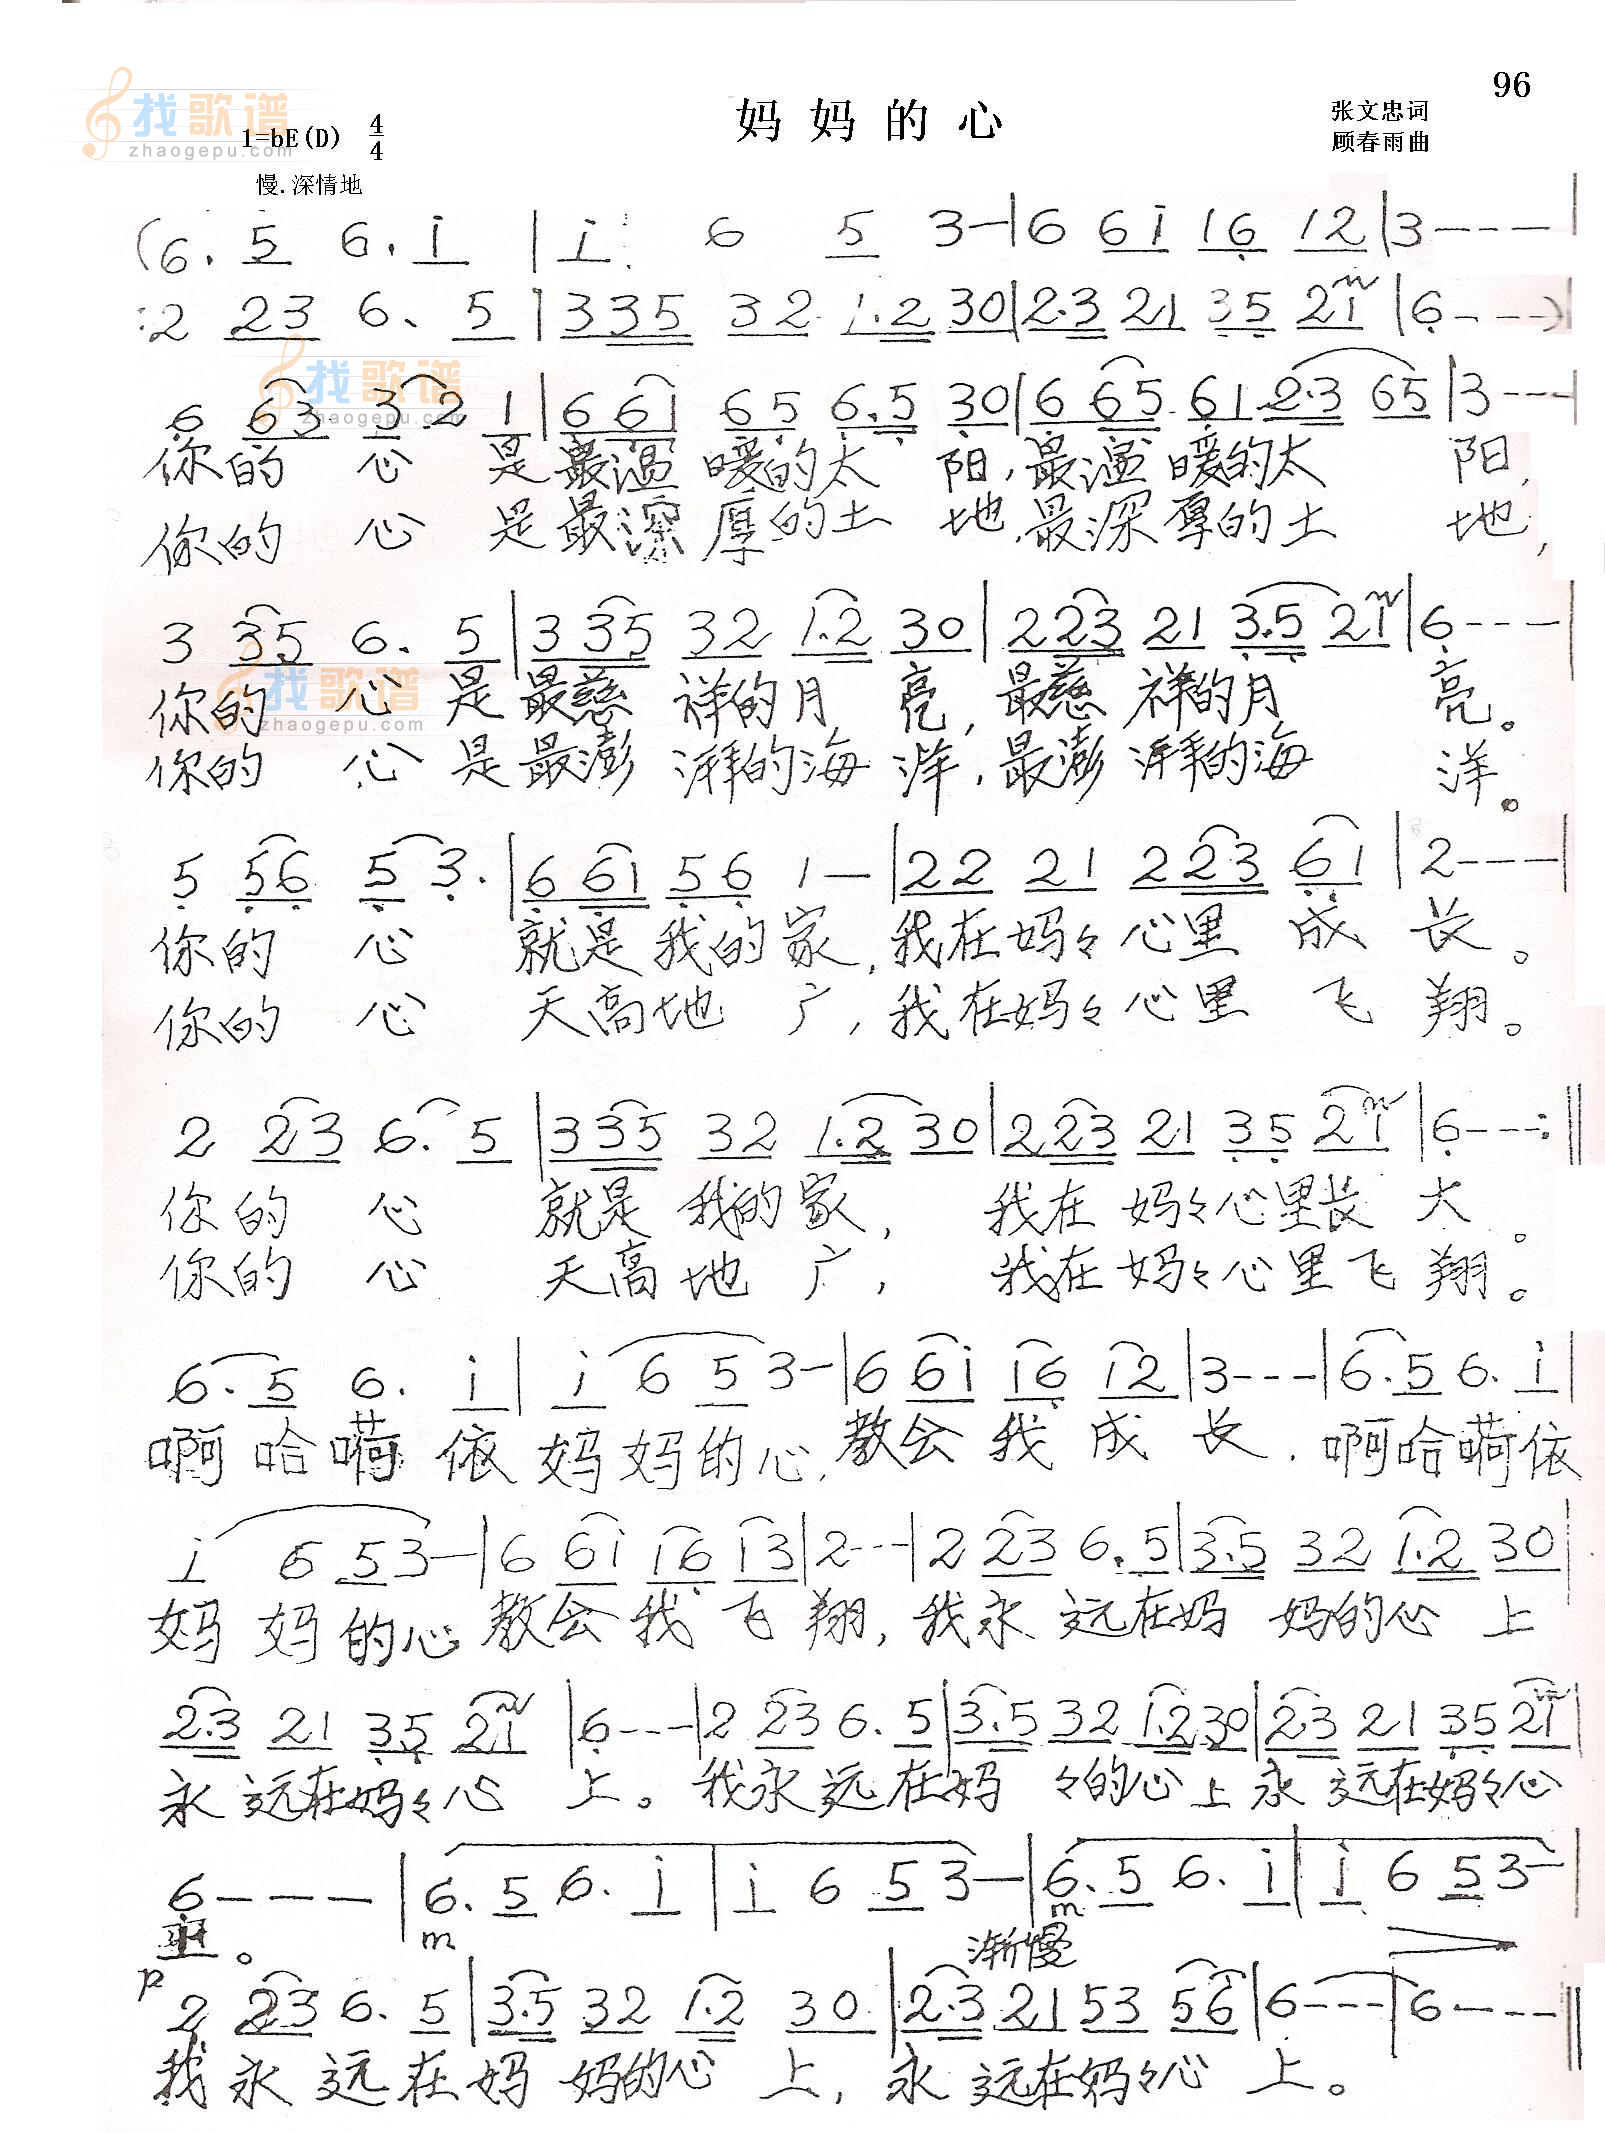 96
找歌谱
zhaogepu.com
妈妈的心
张文忠词
顾春雨曲
1=bE(D) 4/4
慢.深情地
(6. 5 6. i | i 6 5 3— | 6 6i 16 12 | 3---
:2 23 6. 5 | 335 32 1.2 30 | 2.3 21 35 21 | 6---)
找歌谱
zhaogepu.com
6 63 3 2 1 | 661 65 6.5 30 | 6 65 61 2.3 65 | 3---
你的 心 是最温 暖的太 阳,最温暖的太 阳,
你的 心 是最深厚的土 地,最深厚的土 地,
3 35 6. 5 | 335 32 1.2 30 | 223 21 3.5 21 | 6---
找歌谱
zhaogepu.com
你的 心 是最慈 祥的月 亮,最慈祥的月 亮。
你的 心 是最澎湃的海洋,最澎湃的海 洋。
5 56 5 3. | 661 56 1— | 22 21 223 61 | 2---
你的 心 就是我的家,我在妈々心里 成 长。
你的 心 天高地 广,我在妈々心里 飞 翔。
2 23 6. 5 | 335 32 1.2 30 | 223 21 35 21 | 6---:‖
你的 心 就是 我的家, 我在 妈々心里长 大。
你的 心 天高地 广, 我在妈々心里飞 翔。
6. 5 6. i | i 6 5 3— | 6 6i i6 i2 | 3--- | 6.5 6. i |
啊哈嗬依妈妈的心,教会我成长.啊哈嗬依
i 6 53— | 6 6i i6 i3 | 2--- | 2 23 6. 5 | 3.5 32 1.2 30 |
妈妈的心教会我飞翔,我永远在妈妈的心上
2.3 21 35 21 | 6--- | 2 23 6. 5 | 3.5 32 1.2 30 | 2.3 21 35 21 |
永远在妈々心 上。我永远在妈々的心上永远在妈々心
6 — — — | 6. 5 6. i | i 6 5 3— | 6. 5 6. i | i 6 5 3— |
里。 m 渐慢 m
p
2 23 6. 5 | 3.5 32 1.2 30 | 2.3 21 53 56 | 6--- | 6---‖
我永远在妈妈的心 上,永远在妈々心上。